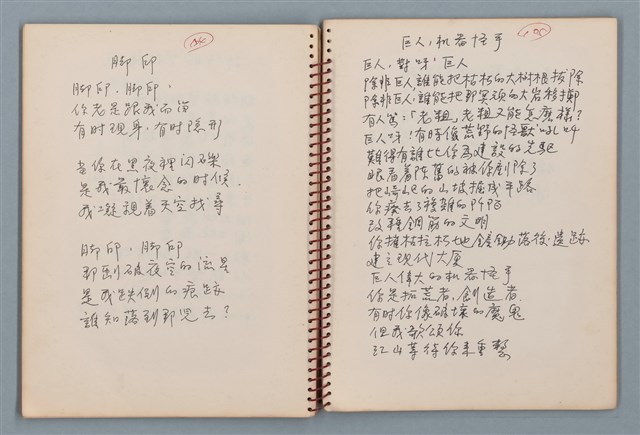 脚印
脚印，脚印，
你老是跟我而留
有时现身，有时隐形
当你在黑夜裡闪
是我最懷念的时候
我凝視着天空找尋
脚印，脚印
那劃破夜空的流星
是我跌倒的痕跡
誰知落到那兒去？
巨人，机器怪手
巨人，對呀！巨人
除非巨人，誰能把枯枯的大树根拔除
除非巨人，誰能把那冥頑的大岩移擲
有人罵：「老粗」，老粗又能怎麼樣？
巨人呀！有時像荒野的怪獸吼叫
難得有誰比你為建設的先驅
眼看着陈舊的被你剷除了
把崎岖的山坡掘成平路
你廢去了穢雜的
改種鋼筋的文明
你摧枯拉朽地鏟鋤落後遺跡
建立現代大厦
巨人偉大的机器怪手
你是拓荒者，創造者
有时你像破壊的魔鬼
但我歌頌你
江山等待你来重整